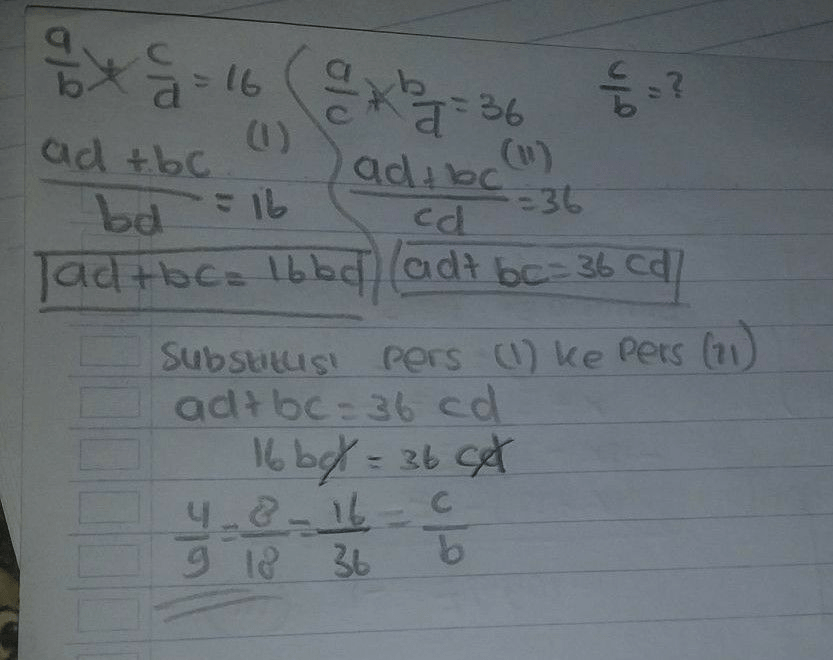 a/b + c/d = 16 ( a/c + b/d = 36 c/b = ?
(I) (II)
ad + bc / bd = 16 ad + bc / cd = 36
ad + bc = 16 bd ad + bc = 36 cd
Substitusi pers (I) ke pers (II)
ad + bc = 36 cd
16 bd = 36 cd
4/9 = 8/18 = 16/36 = c/b